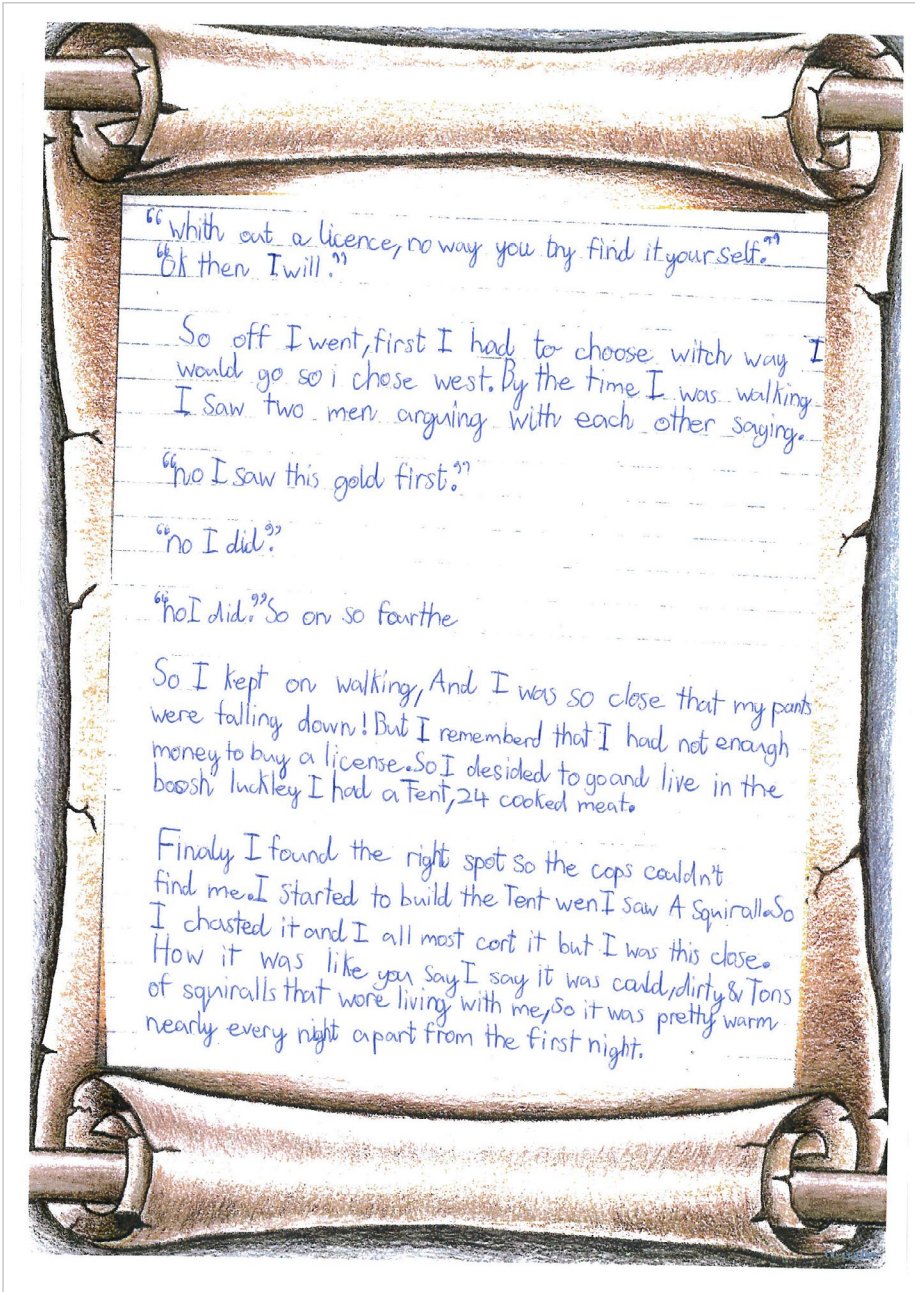 “whith out a licence, no way you try find it your self.”
“Ok then I will.”
So off I went, first I had to choose witch way I
would go so i chose west. By the time I was walking
I saw two men arguing with each other saying.
“no I saw this gold first.”
“no I did.”
“no I did.” So on so fourthe
So I kept on walking, And I was so close that my pants
were falling down! But I rememberd that I had not enough
money to buy a license. So I desided to go and live in the
boosh luckley I had a Tent, 24 cooked meat.
Finaly I found the right spot so the cops couldn't
find me. I started to build the Tent wen I saw A Squirall. So
I chasted it and I all most cort it but I was this close.
How it was like you say I say it was could, dirty & Tons
of squiralls that wore living with me, So it was pretty warm
nearly every night apart from the first night.